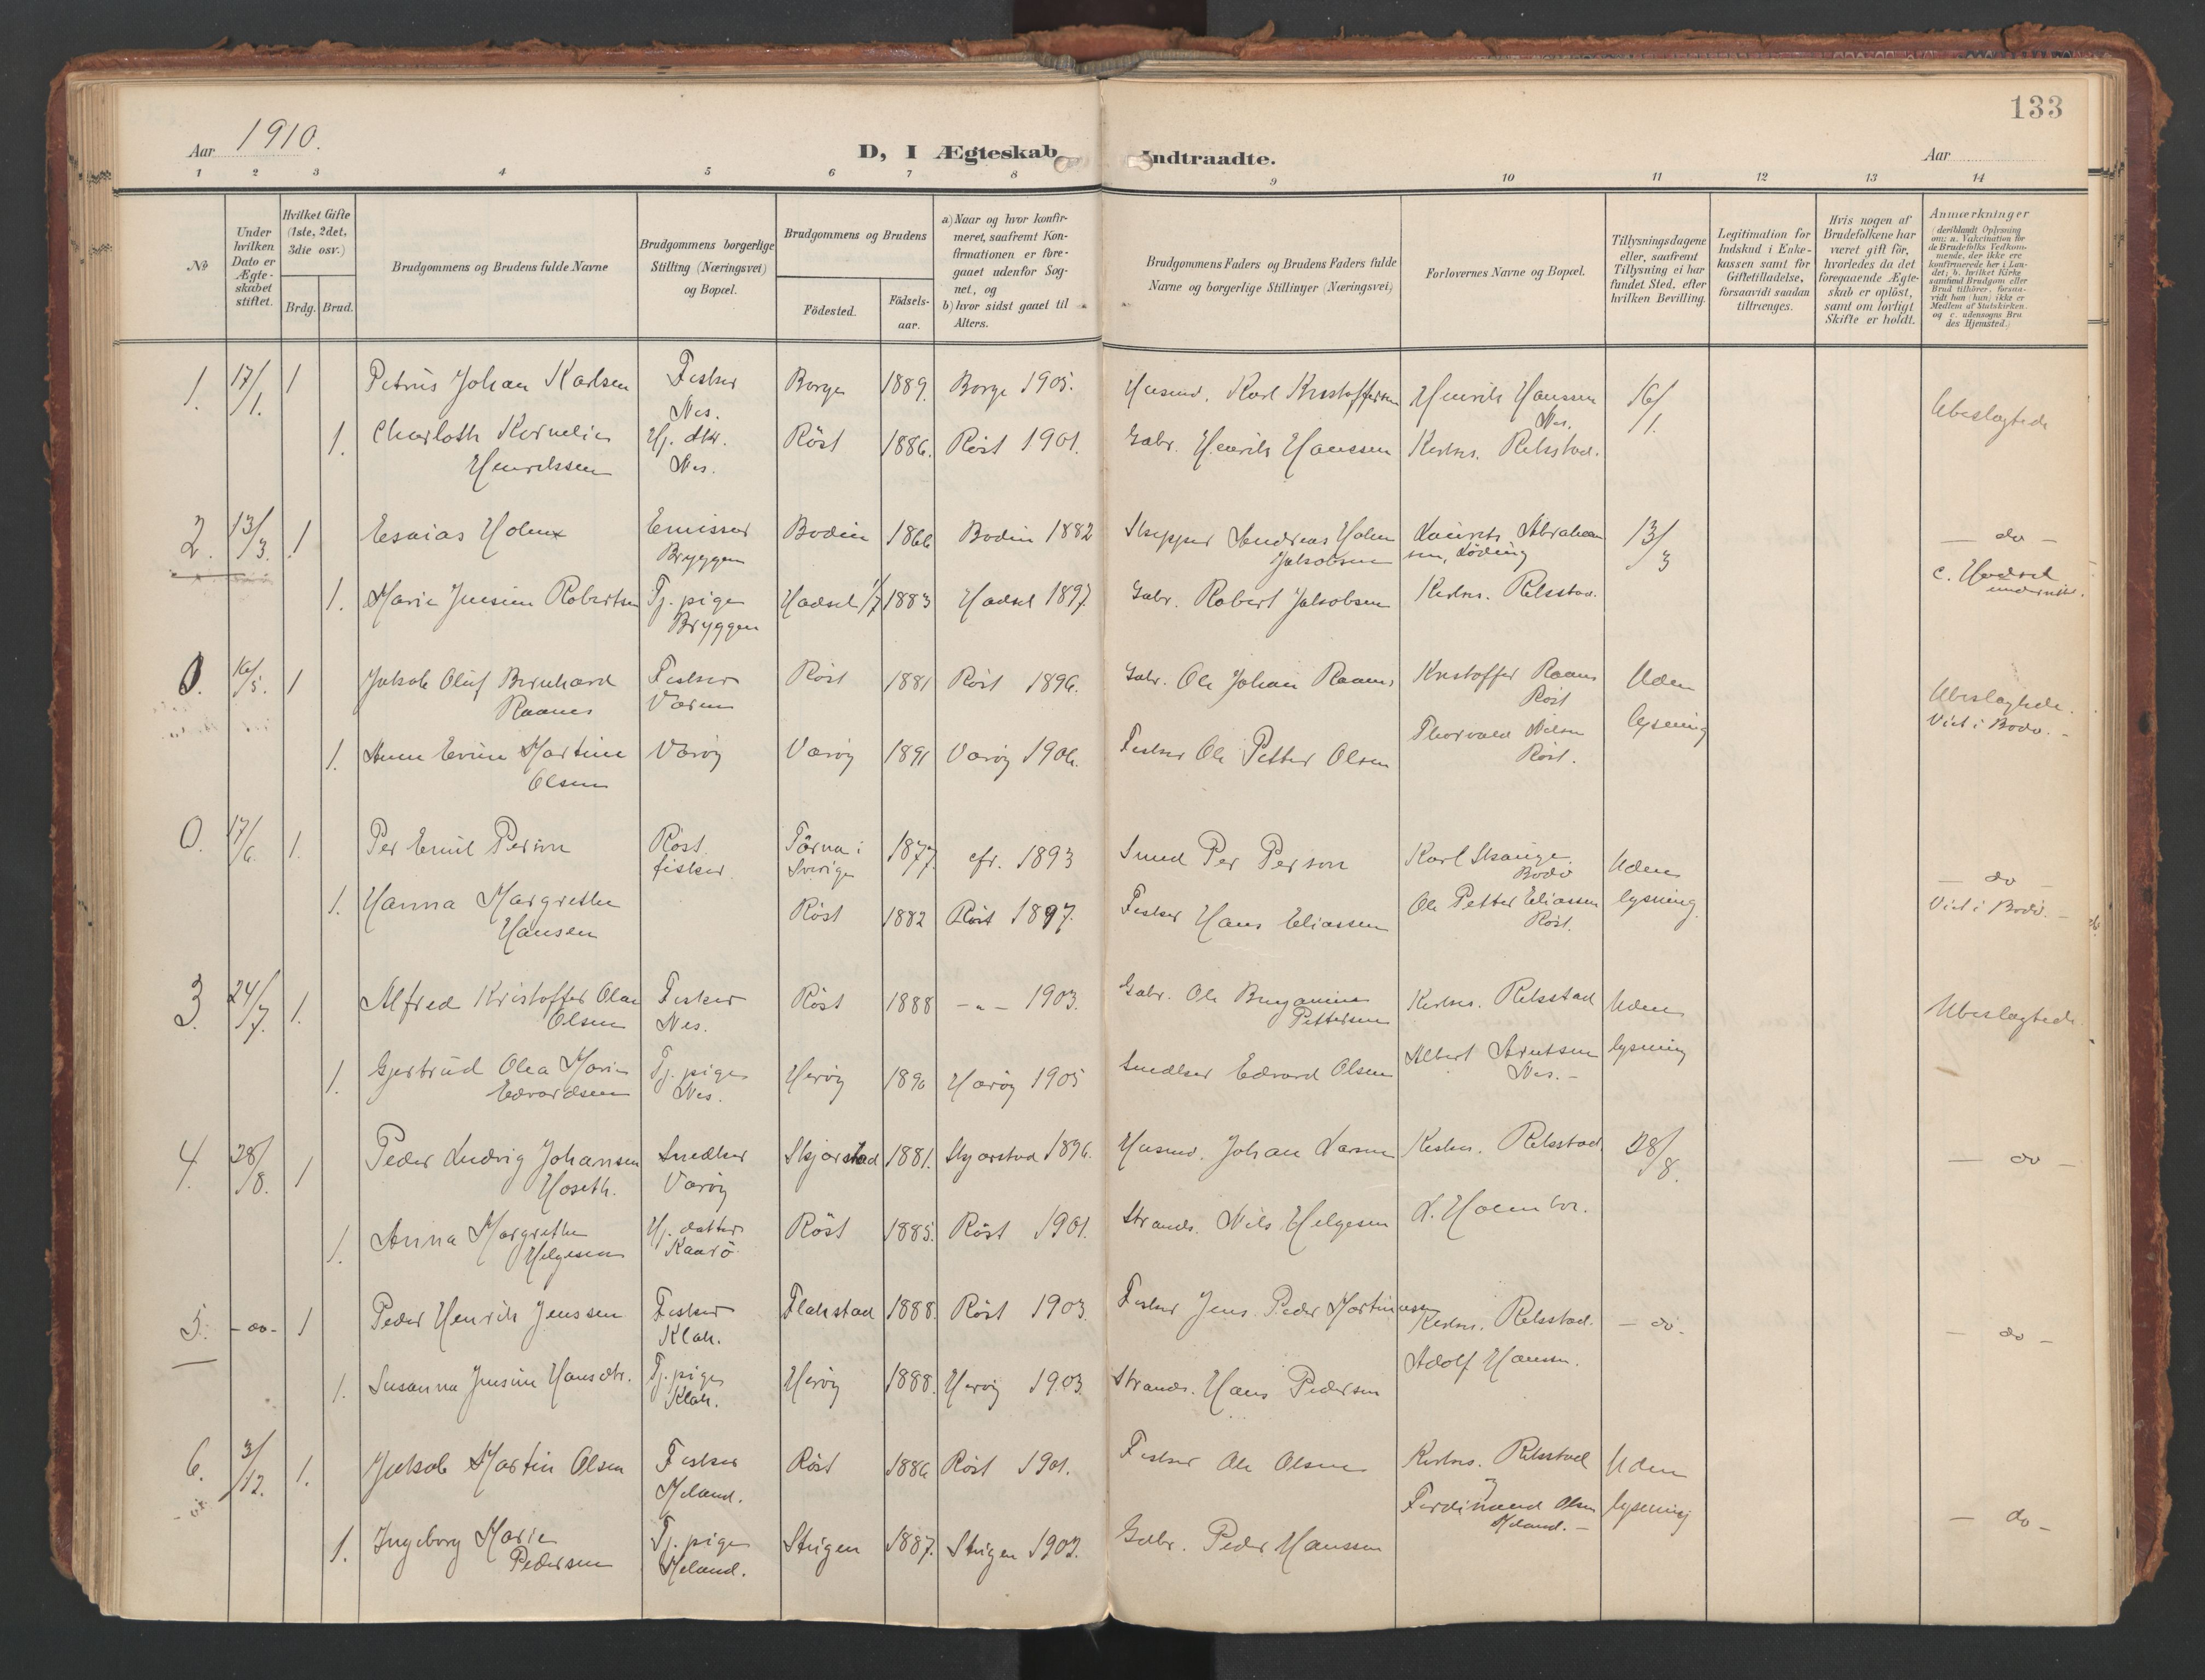 133
Aar 1910.
D, I Ægteskab Indtraadte.
Aar
1 2 3 4 5 6 7 8 9 10 11 12 13 14
No
Under hvilken Dato er Ægteskabet stiftet.
Hvilket Gifte (1ste, 2det, 3die osv.)
Brdg. Brud.
Brudgommens og Brudens fulde Navne
Brudgommens borgerlige Stilling (Næringsvei) og Bopæl.
Brudgommens og Brudens
Födested.
Födselsaar.
a) Naar og hvor konfirmeret, saafremt Konfirmationen er foregaaet udenfor Sognet, og
b) hvor sidst gaaet til Alters.
Brudgommens Faders og Brudens Faders fulde Navne og borgerlige Stillinger (Næringsvei)
Forlovernes Navne og Bopæl.
Tillysningsdagene eller, saafremt Tillysning ei har fundet Sted, efter hvilken Bevilling.
Legitimation for Indskud i Enkekassen samt for Giftetilladelse, forsaavidt saadan tiltrænges.
Hvis nogen af Brudefolkene har været gift för, hvorledes da det foregaaende Ægteskab er oplöst, samt om lovligt Skifte er holdt.
Anmærkninger (deriblandt Oplysning om: a. Vakcination for de Brudefolks Vedkommende, der ikke ere konfirmerede her i Landet; b. hvilket Kirkesamfund Brudgom eller Brud tilhörer, forsaavidt han (hun) ikke er Medlem af Statskirken. og c. udensogns Brudes Hjemsted.)
1. 17/1. 1 Petrus Johan Karlsen Fisker Nes. Borge 1889. Borge 1905. Husmd. Karl Kristoffersen Henrik Hanssen Nes. 16/1. Ubeslægtede
1. Charloth Kornelia Henrikssen Hj. dtr. Nes. Röst 1886. Röst 1901. Gabr. Henrik Hanssen Kirkes. Relsstad.
2. 13/3. 1 Esaias Holm Emissær Bryggen Bodin 1866 Bodin 1882 Skipper Andreas Holm Jakobsen Laurits Abrahamsen, Löding 13/3 - do -
1. Marie Jensine Robertsen Tj. pige Bryggen Hadsel 1/7 1883 Hadsel 1897 Gabr. Robert Jakobsen Kirkes. Relsstad. c. Hadsel
0. 16/5. 1 Jakob Oluf Bernhard Raanes Fisker Væröy Röst 1881 Röst 1896. Gabr. Ole Johan Raanes Kristoffer Raanes Röst Uden lysning Ubeslægtede. Viet i Bodö. -
1. Anne Evine Martine Olsen Væröy Væröy 1891 Væröy 1906. Fisker Ole Petter Olsen Thorvald Nilsen Röst.
0. 17/6. 1. Per Emil Person Röst. fisker. Tärna i Sverige 1877. cfr. 1893 Smed Per Person Karl Skauge. Bodö Uden lysning. - do - Viet i Bodö. -
1. Hanna Margrethe Hansen Röst 1882 Röst 1897. Fisker Hans Eliassen Ole Petter Eliassen Röst.
3. 24/7. 1. Alfred Kristoffer Olai Olsen Fisker Nes. Röst 1888 - " - 1903. Gabr. Ole Benjamin Pettersen Kirkes. Relsstad Uden lysning Ubeslægtede.
1. Gjertrud Olea Marie Edvardsen Tj. pige Nes. Heröy 1890 Heröy 1905 Snedker Edvard Olsen Albert Arntsen Nes. -
4. 28/8. 1 Peder Ludvig Johansen Hoseth. Snedker Væröy Skjærstad 1881. Skjærstad 1896. Husmd. Johan Larsen Kirkes. Relsstad. 28/8. - do -
1. Anna Margrethe Helgesen Hj. datter Kaarö Röst 1885. Röst 1901. Strands. Nils Helgesen
5. - do - 1 Peder Henrik Jenssen Fisker Klak. Flakstad 1888. Röst 1903. Fisker Jens Peder Martinussen Kirkes. Relsstad. - do - - do -
1. Susanna Jensine Hansdtr. Tj. pige Klak. Heröy 1888. Heröy 1903. Strands. Hans Pedersen Adolf Hansen.
6. 3/12. 1. Jakob Martin Olsen Fisker Heland. Röst 1886 Röst 1901. Fisker Ole Olsen Kirkes. Relsstad Uden lysning
1. Ingeborg Marie Pedersen Tj. pige Heland. Steigen 1887. Steigen 1902. Gabr. Peder Hanssen Ferdinand Olsen Heland. - - do -